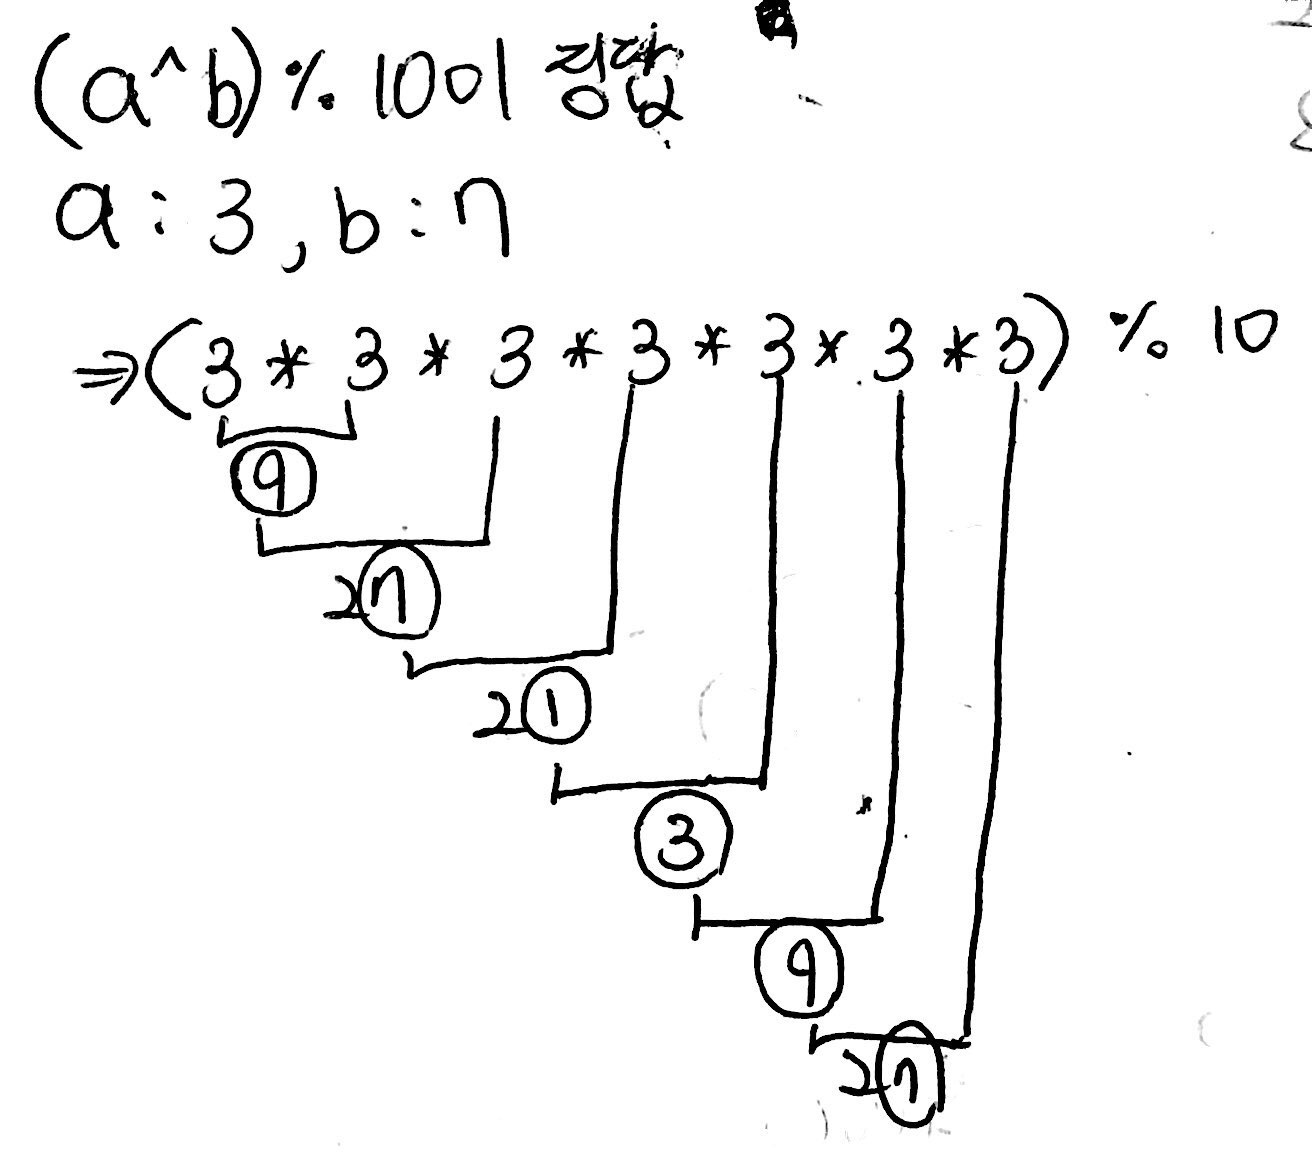 (a^b)% 10이 정답
a : 3 , b : 7
⇒(3 * 3 * 3 * 3 * 3 * 3 * 3) % 10
9
27
21
3
9
27